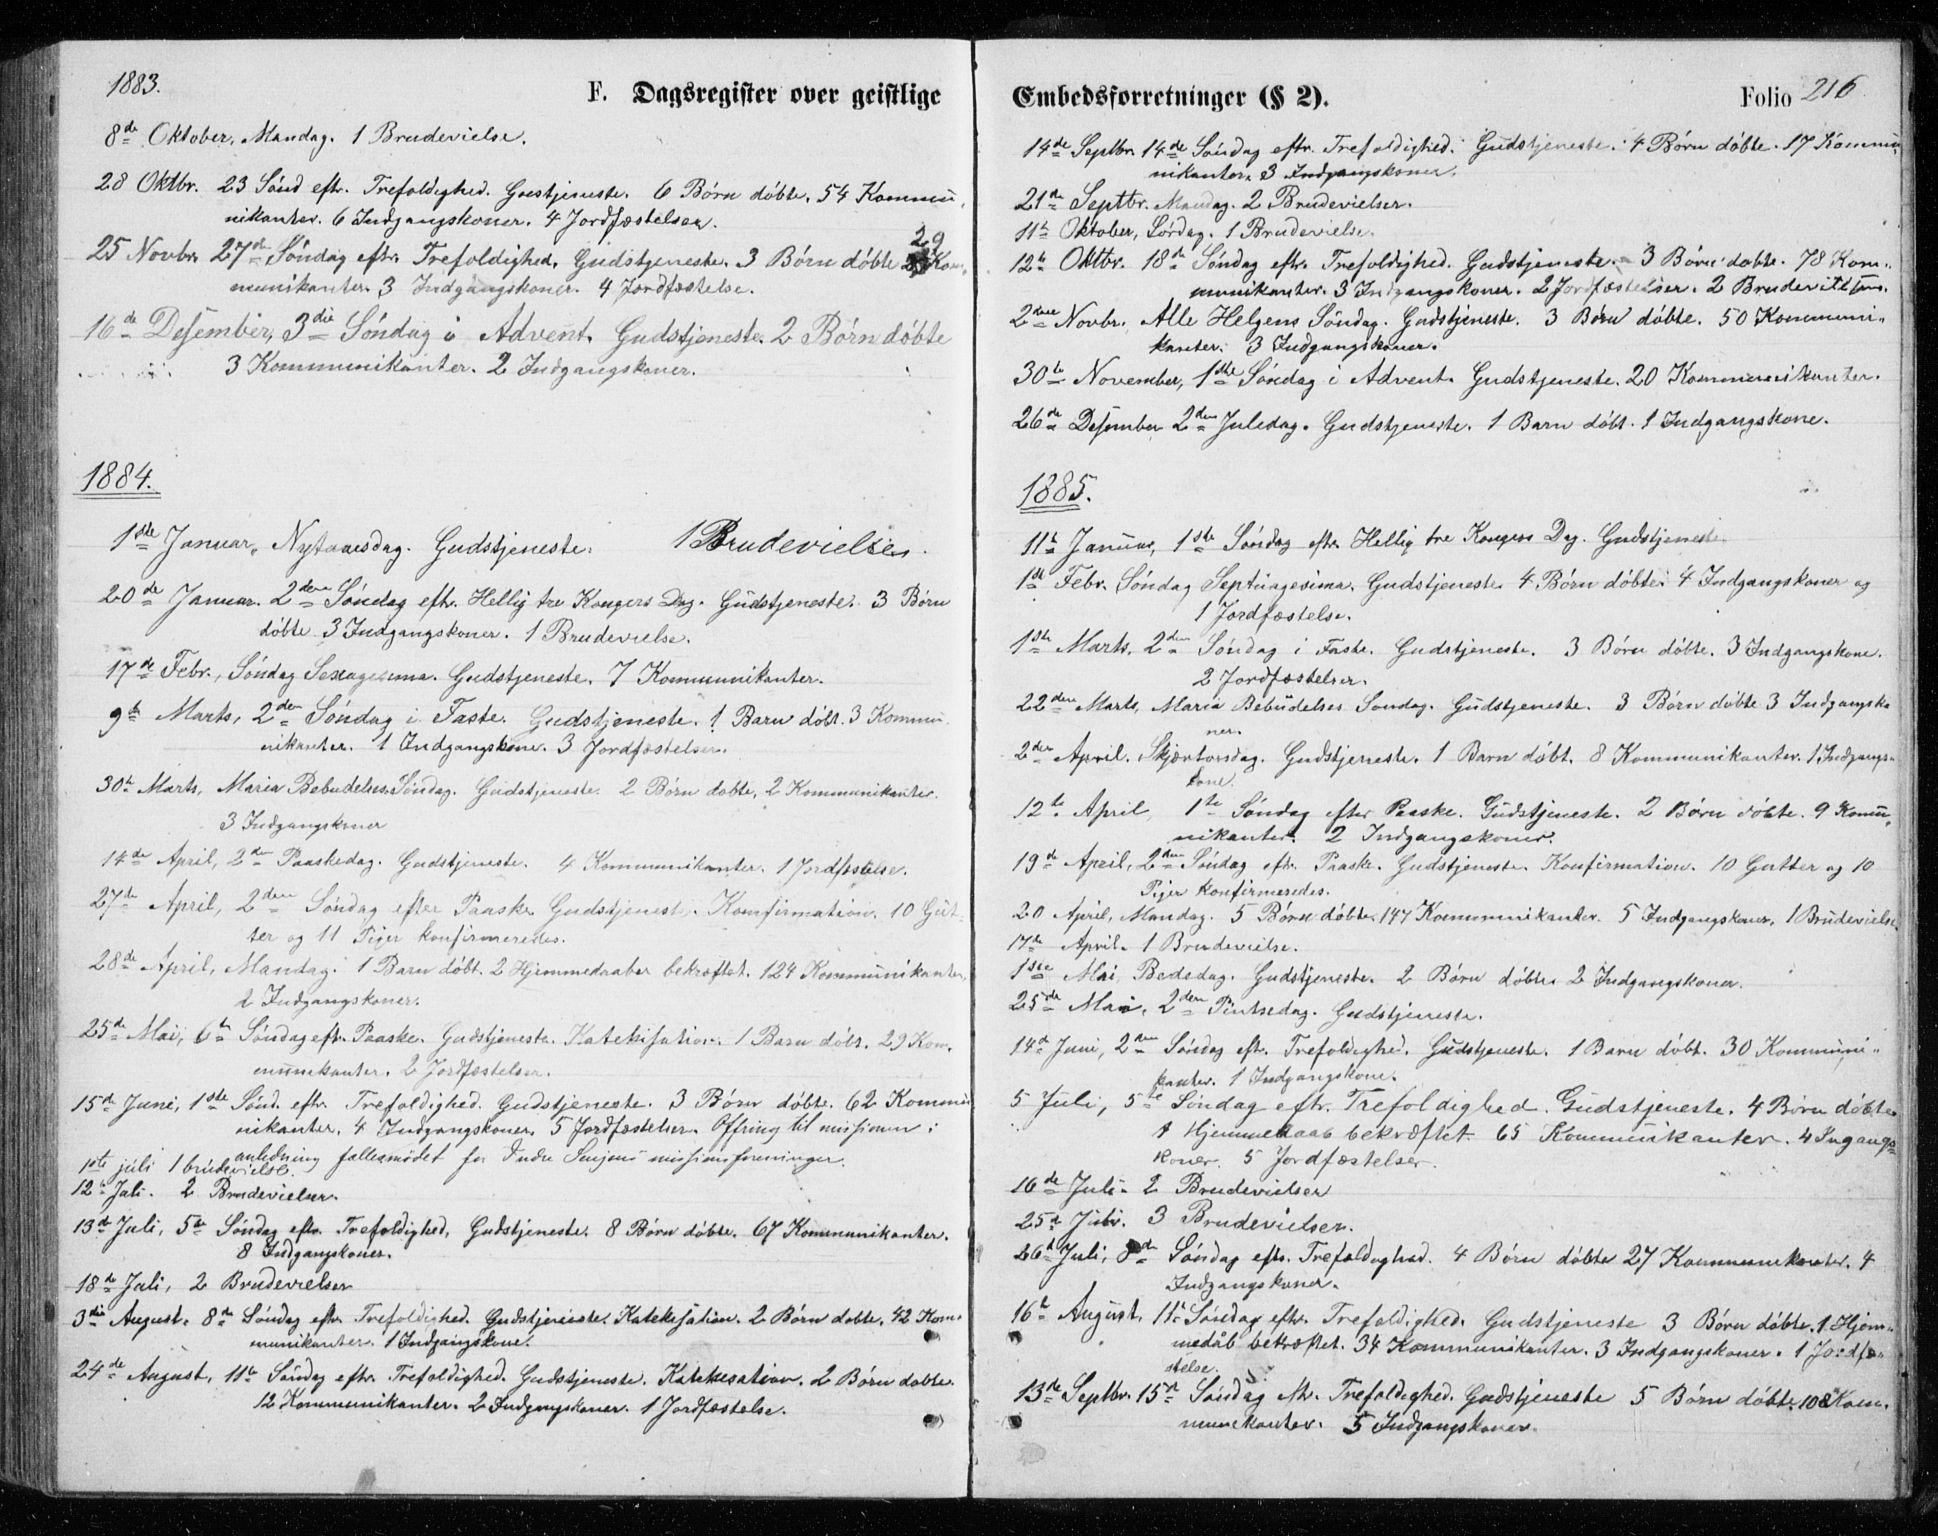 1883.
F. Dagsregister over geistlige
8de Oktober, Mandag. 1 Brudevielse.
28 Oktbr. 23 Sönd eftr. Trefoldighed. Gustjeneste. 6 Börn döbte. 54 Kommu„
nikanter. 6 Indgangskoner. 4 Jordfæstelser.
29
25 Novbr. 27de Söndag eftr. Trefoldighed. Gudstjeneste. 3 Börn döbte Kom„
munikanter. 3 Indgangskoner. 4 Jordfæstelse.
16de Desember, 3die Söndag i Advent. Gudstjeneste. 2 Börn döbte
3 Kommunikanter. 2 Indgangskoner.
1884.
1ste Januar, Nytaarsdag. Gudstjeneste. 1 Brudevielse.
20de Januar. 2den Söndag eftr. Hellig tre Kongers Dag. Gudstjeneste. 3 Börn
döbte 3 Indgangskoner. 1 Brudevielse.
17de Febr., Söndag Sexagesima. Gudstjeneste. 7 Kommunikanter.
9de Marts, 2den Söndag i Faste. Gudstjeneste. 1 Barn döbt. 3 Kommu„
nikanter. 1 Indgangskone. 3 Jordfæstelser.
30te Marts, Maria Bebudelses Söndag. Gudstjeneste. 2 Börn döbte, 2 Kommunikanter.
3 Indgangskoner
14de April, 2den Paaskedag. Gudstjeneste. 4 Kommunikanter. 1 Jordfæstelse.
27de April, 2den Söndag efter Paaske Gudstjeneste. Komfirmation. 10 Gut„
ter og 11 Piger konfirmeredes.
28de April, Mandag. 1 Barn döbt. 2 Hjemmedaaber bekræftet. 124 Kommunikanter,
2 Indgangskoner.
25de Mai, 6te Söndag eftr. Paaske. Gudstjeneste. Katekisation. 1 Barn döbt. 29 Kom„
munikanter. 2 Jordfæstelser.
15de Juni, 1ste Sönd. eftr. Trefoldighed. Gudstjeneste. 3 Börn döbte. 62 Kommu
nikanter. 4 Indgangskoner. 5 Jordfæstelser. Offring til missionen i
anledning fællesmödet for Indre Senjens missionsforeninger.
1ste juli 1 brudevielse.
12te Juli. 2 Brudevielser.
13de Juli, 5te Söndag eftr. Trefoldighed, Gudstjeneste. 8 Börn döbte. 67 Kommunikanter.
8 Indgangskoner.
18de Juli, 2 Brudevielser
3die August. 8de Söndag eftr. Trefoldighed. Gudstjeneste. Katekisation. 2 Börn döbte. 42 Kom„
munikanter. 1 Indgangskone.
24de August, 11te Söndag eftr. Trefoldighed. Gudstjeneste. Katekesation. 2 Börn döbte.
12 Kommunikanter. 2 Indgangskoner. 1 Jordfæstelse.
Embedsforretninger (§ 2).
Folio 216
14de Septbr. 14de Söndag eftr. Trefoldighed. Gudstjeneste. 4 Börn döbte. 17 Kommu„
nikanter. 3 Indgangskoner.
21de Septbr. Mandag. 2 Brudevielser.
11te Oktober, Lördag. 1 Brudevielse.
12te Oktbr. 18de Söndag eftr. Trefoldighed. Gudstjeneste. 3 Börn döbte. 78 Kom„
munikanter. 3 Indgangskoner. 2 Jordfæstelser. 2 Brudevielser.
2den Novbr. Alle Helgens Söndag. Gudstjeneste. 3 Börn döbte. 50 Kommuni„
kanter. 3 Indgangskoner.
30te November, 1ste Söndag i Advent. Gudstjeneste. 20 Kommunikanter.
26de Desember 2den Juledag. Gudstjeneste. 1 Barn döbt. 1 Indgangskone.
1885.
11te Januar, 1ste Söndag eftr. Hellig tre Kongers Dag. Gudstjeneste
1ste Febr. Söndag Septuagesima. Gudstjeneste. 4 Börn döbte. 4 Indgangskoner og
1 Jordfæstelse.
1ste Marts, 2den Söndag i Faste. Gudstjeneste. 3 Börn döbte. 3 Indgangskone.
2 Jordfæstelser.
22den Marts, Maria Bebudelses Söndag. Gudstjeneste. 3 Börn döbte 3 Indgangsko
ner.
2den April. Skjærtorsdag. Gudstjeneste. 1 Barn döbt. 8 Kommunikanter. 1 Indgangs„
kone.
12te April, 1ste Söndag efter Paaske. Gudstjeneste. 2 Börn döbte. 9 Komu„
nikanter. 2 Indgangskoner.
19de April, 2den Söndag eftr. Paaske. Gudstjeneste. Konfirmation. 10 Gutter og 10
Piger konfirmeredes.
20 April, Mandag. 5 Börn döbte. 147 Kommunikanter. 5 Indgangskoner, 1 Brudevielse.
17de April. 1 Brudevielse.
1ste Mai, Bededag. Gudstjeneste. 2 Börn döbte. 2 Indgangskoner.
25de Mai, 2den Pintsedag. Gudstjeneste.
14de Juni, 2den Söndag eftr. Trefoldighed. Gudstjeneste. 1 Barn döbt. 30 Kommuni„
kanter. 1 Indgangskone.
5 Juli, 5te Söndag eftr. Trefoldighed. Gudstjeneste. 4 Börn döbte.
1 Hjemmedaab bekræftet. 65 Kommunikanter. 4 Ingangs„
koner. 5 Jordfæstelser.
16de Juli. 2 Brudevielser
25de Juli. 3 Brudevielser.
26de Juli, 8de Söndag eftr. Trefoldighed. 4 Börn döbte 27 Kommunikanter. 4
Indgangskoner.
16te August, 11te Söndag eftr. Trefoldighed. Gudstjeneste 3 Börn döbte. 1 Hjem„
medåb bekræftet. 34 Kommunikanter. 3 Indgangskoner. 1 Jordfæ„
stelse.
13de Septbr. 15de Söndag eftr. Trefoldighed. Gudstjeneste 5 Börn döbte. 108 Kom„
munikanter. 5 Indgangskoner.